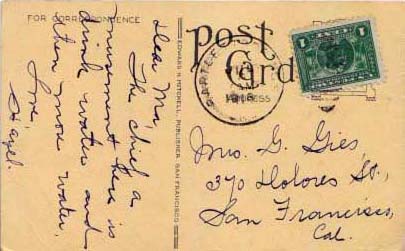 FOR CORRESPONDENCE
Dear Ma,
The chief a
musement here is
drink water and
then more water.
Love
Hazel.
EDWARD H. MITCHELL, PUBLISHER, SAN FRANCISCO
Post
Card
1
Mrs. G. Gies,
370 Dolores St.,
San Francisco,
Cal.